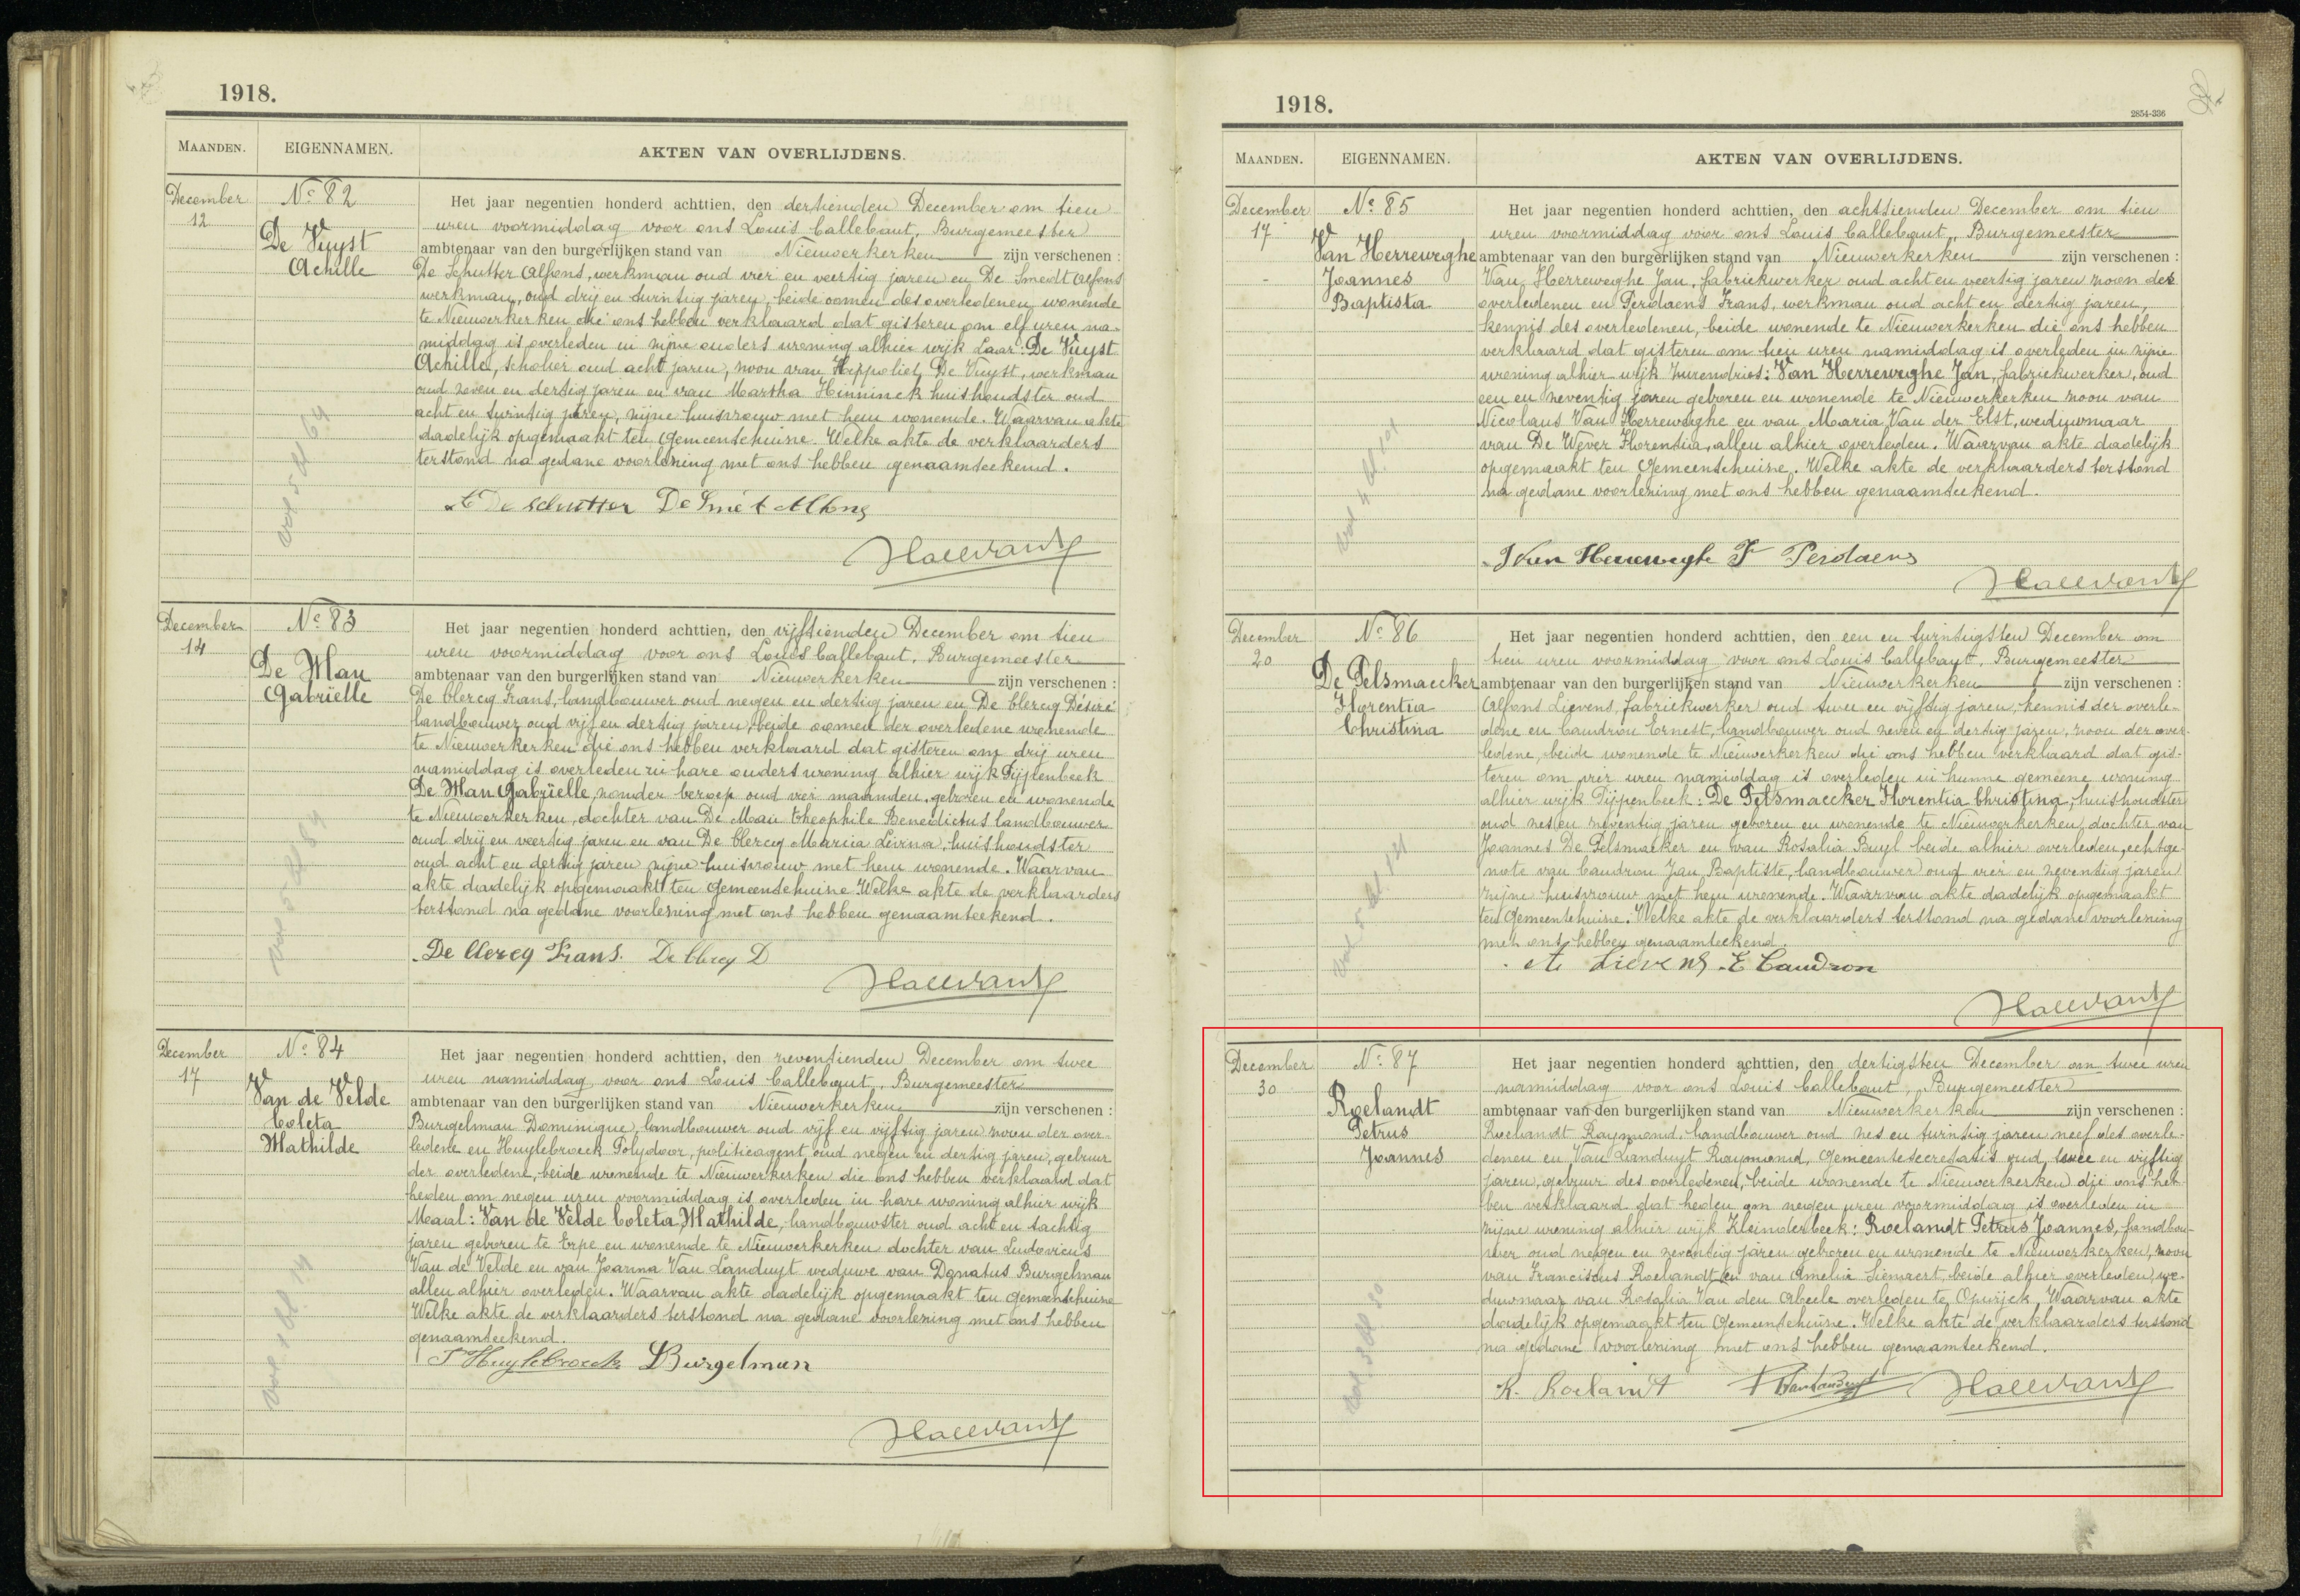 1918.
MAANDEN.
EIGENNAMEN.
AKTEN VAN OVERLIJDENS.
December
12
No 82
De Vuyst
Achille
Het jaar negentien honderd achttien, den dertienden December om tien
uren voormiddag voor ons Louis Callebaut, Burgemeester
ambtenaar van den burgerlijken stand van Nieuwerkerken zijn verschenen :
De Schutter Alfons, werkman oud vier en veertig jaren en De Smedt Alfons
werkman, oud drij en twintig jaren, beide oomen des overledenen wonende
te Nieuwerkerken die ons hebben verklaard dat gisteren om elf uren na-
middag is overleden in zijne ouders woning alhier wijk Laar: De Vuyst
Achille, scholier oud acht jaren, zoon van Hippoliet De Vuyst, werkman
oud zeven en dertig jaren en van Martha Hinninck huishoudster oud
acht en twintig jaren, zijne huisvrouw met hem wonende. Waarvan akte
dadelijk opgemaakt ten Gemeentehuize. Welke akte de verklaarders
terstond na gedane voorlezing met ons hebben genaamteekend.
A De Schutter De Smét Alfons
December
14
No 83
De Man
Gabriëlle
Het jaar negentien honderd achttien, den vijftienden December om tien
uren voormiddag voor ons Louis Callebaut, Burgemeester
ambtenaar van den burgerlijken stand van Nieuwerkerken zijn verschenen :
De Clercq Frans, landbouwer oud negen en dertig jaren en De Clercq Désiré
landbouwer oud vijf en dertig jaren, beide oomen der overledene wonende
te Nieuwerkerken die ons hebben verklaard dat gisteren om drij uren
namiddag is overleden in hare ouders woning alhier wijk Dijpenbeek
De Man Gabriëlle, zonder beroep oud vier maanden, geboren en wonende
te Nieuwerkerken, dochter van De Man Theophile Benedictus landbouwer
oud drij en veertig jaren en van De Clercq Maria Livina, huishoudster
oud acht en dertig jaren zijne huisvrouw met hem wonende. Waarvan
akte dadelijk opgemaakt ten Gemeentehuize Welke akte de verklaarders
terstond na gedane voorlezing met ons hebben genaamteekend.
De Clercq Frans. De Clercq D
December
17
No 84
Van de Velde
Coleta
Mathilde
Het jaar negentien honderd achttien, den zeventienden December om twee
uren namiddag voor ons Louis Callebaut, Burgemeester
ambtenaar van den burgerlijken stand van Nieuwerkerken zijn verschenen :
Burgelman Dominique, landbouwer oud vijf en vijftig jaren zoon der over-
ledene en Huylebroeck Polydoor, politieagent oud negen en dertig jaren, gebuur
der overledene, beide wonende te Nieuwerkerken die ons hebben verklaard dat
heden om negen uren voormiddag is overleden in hare woning alhier wijk
Maal: Van de Velde Coleta Mathilde, landbouwster oud acht en tachtig
jaren geboren te Erpe en wonende te Nieuwerkerken dochter van Ludovicus
Van de Velde en van Joanna Van Landuyt weduwe van Donatus Burgelman
allen alhier overleden. Waarvan akte dadelijk opgemaakt ten Gemeentehuize
Welke akte de verklaarders terstond na gedane voorlezing met ons hebben
genaamteekend.
P Huylebroeck D Burgelman
1918.
2854-336
MAANDEN.
EIGENNAMEN.
AKTEN VAN OVERLIJDENS.
December
17
No 85
Van Herreweghe
Joannes
Baptista
Het jaar negentien honderd achttien, den achttienden December om tien
uren voormiddag voor ons Louis Callebaut, Burgemeester
ambtenaar van den burgerlijken stand van Nieuwerkerken zijn verschenen :
Van Herreweghe Jan, fabriekwerker oud acht en veertig jaren zoon des
overledenen en Perdaens Frans, werkman oud acht en dertig jaren,
kennis des overledenen, beide wonende te Nieuwerkerken die ons hebben
verklaard dat gisteren om tien uren namiddag is overleden in zijne
woning alhier wijk Zurendries: Van Herreweghe Jan, fabriekwerker, oud
een en zeventig jaren geboren en wonende te Nieuwerkerken zoon van
Nicolaus Van Herreweghe en van Maria Van der Elst, weduwnaar
van De Wever Florentia, allen alhier overleden. Waarvan akte dadelijk
opgemaakt ten Gemeentehuize. Welke akte de verklaarders terstond
na gedane voorlezing met ons hebben genaamteekend.
J Van Herreweghe F Perdaens
December
20
No 86
De Pelsmaecker
Florentia
Christina
Het jaar negentien honderd achttien, den een en twintigsten December om
tien uren voormiddag voor ons Louis Callebaut, Burgemeester
ambtenaar van den burgerlijken stand van Nieuwerkerken zijn verschenen :
Alfons Lievens, fabriekwerker oud twee en vijftig jaren, kennis der overle-
dene en Caudron Ernest, landbouwer oud zeven en dertig jaren, zoon der over-
ledene, beide wonende te Nieuwerkerken die ons hebben verklaard dat gis-
teren om vier uren namiddag is overleden in hunne gemeene woning
alhier wijk Dijpenbeek: De Pelsmaecker Florentia Christina, huishoudster
oud zes en zeventig jaren geboren en wonende te Nieuwerkerken dochter van
Joannes De Pelsmaeker en van Rosalia Buyl beide alhier overleden, echtge-
note van Caudron Jan Baptiste, landbouwer oud vier en zeventig jaren
zijne huisvrouw met hem wonende. Waarvan akte dadelijk opgemaakt
ten Gemeentehuize. Welke akte de verklaarders terstond na gedane voorlezing
met ons hebben genaamteekend.
A Lievens E Caudron
December
30
No 87
Roelandt
Petrus
Joannes
Het jaar negentien honderd achttien, den dertigsten December om twee uren
namiddag voor ons Louis Callebaut, Burgemeester
ambtenaar van den burgerlijken stand van Nieuwerkerken zijn verschenen :
Roelandt Raymond, landbouwer oud zes en twintig jaren neef des overle-
denen en Van Landuyt Raymond, Gemeentesecretaris oud twee en vijftig
jaren, gebuur des overledenen, beide wonende te Nieuwerkerken die ons heb-
ben verklaard dat heden om negen uren voormiddag is overleden in
zijne woning alhier wijk Kleinderbeek: Roelandt Petrus Joannes, landbou-
wer oud negen en zeventig jaren geboren en wonende te Nieuwerkerken, zoon
van Franciscus Roelandt en van Amelia Lienaert, beide alhier overleden, we-
duwnaar van Rosalia Van den Abeele overleden te Opwijck. Waarvan akte
dadelijk opgemaakt ten Gemeentehuize. Welke akte de verklaarders terstond
na gedane voorlezing met ons hebben genaamteekend.
R. Roelandt R Van Landuyt